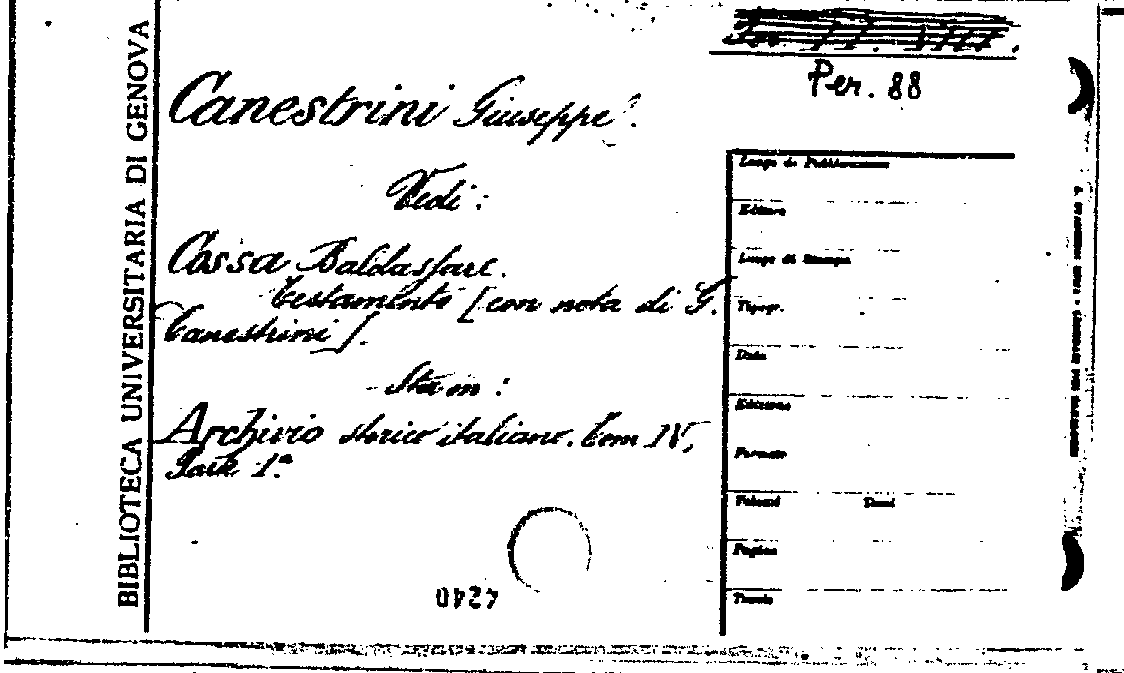 BIBLIOTECA UNIVERSITARIA DI GENOVA
Per. 88
Canestrini Giuseppe.
Vedi:
Cossa Baldassare.
Testamento [con nota di G.
Canestrini].
Sta in:
Archivio storico italiano. Tom IV,
Parte 1ª
4240
Luogo di Pubblicazione
Editore
Luogo di Stampa
Tipogr.
Data
Edizione
Formato
Volumi
Pagine
Tavole